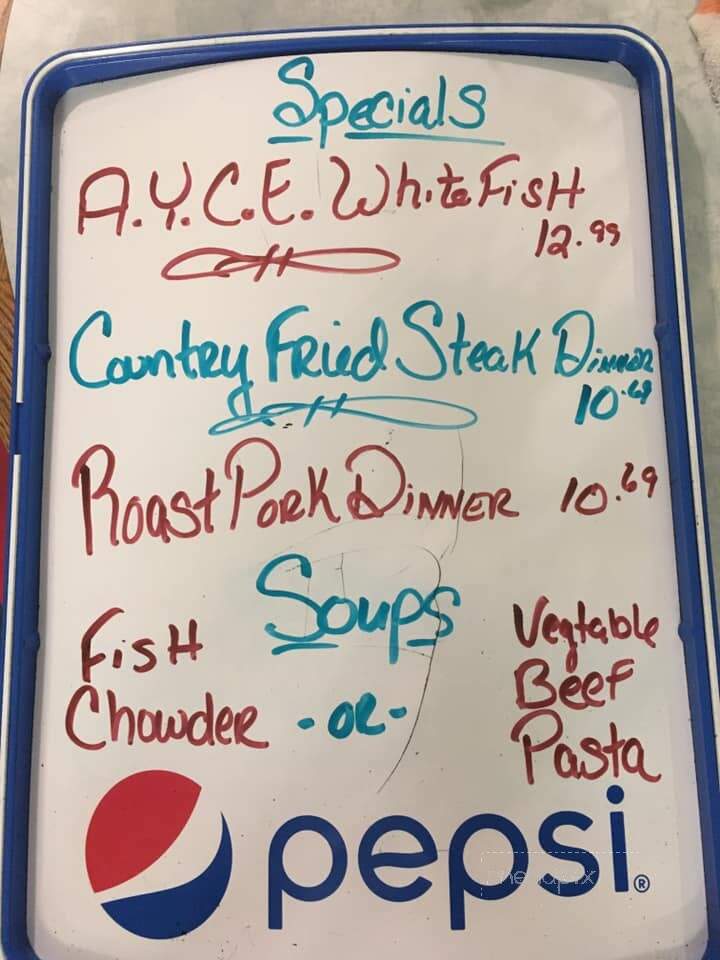 Specials
A.Y.C.E. White Fish
12.99
Country Fried Steak Dinner
10.69
Roast Pork Dinner 10.69
Soups
Fish
Chowder
-or-
Vegtable
Beef
Pasta
pepsi®